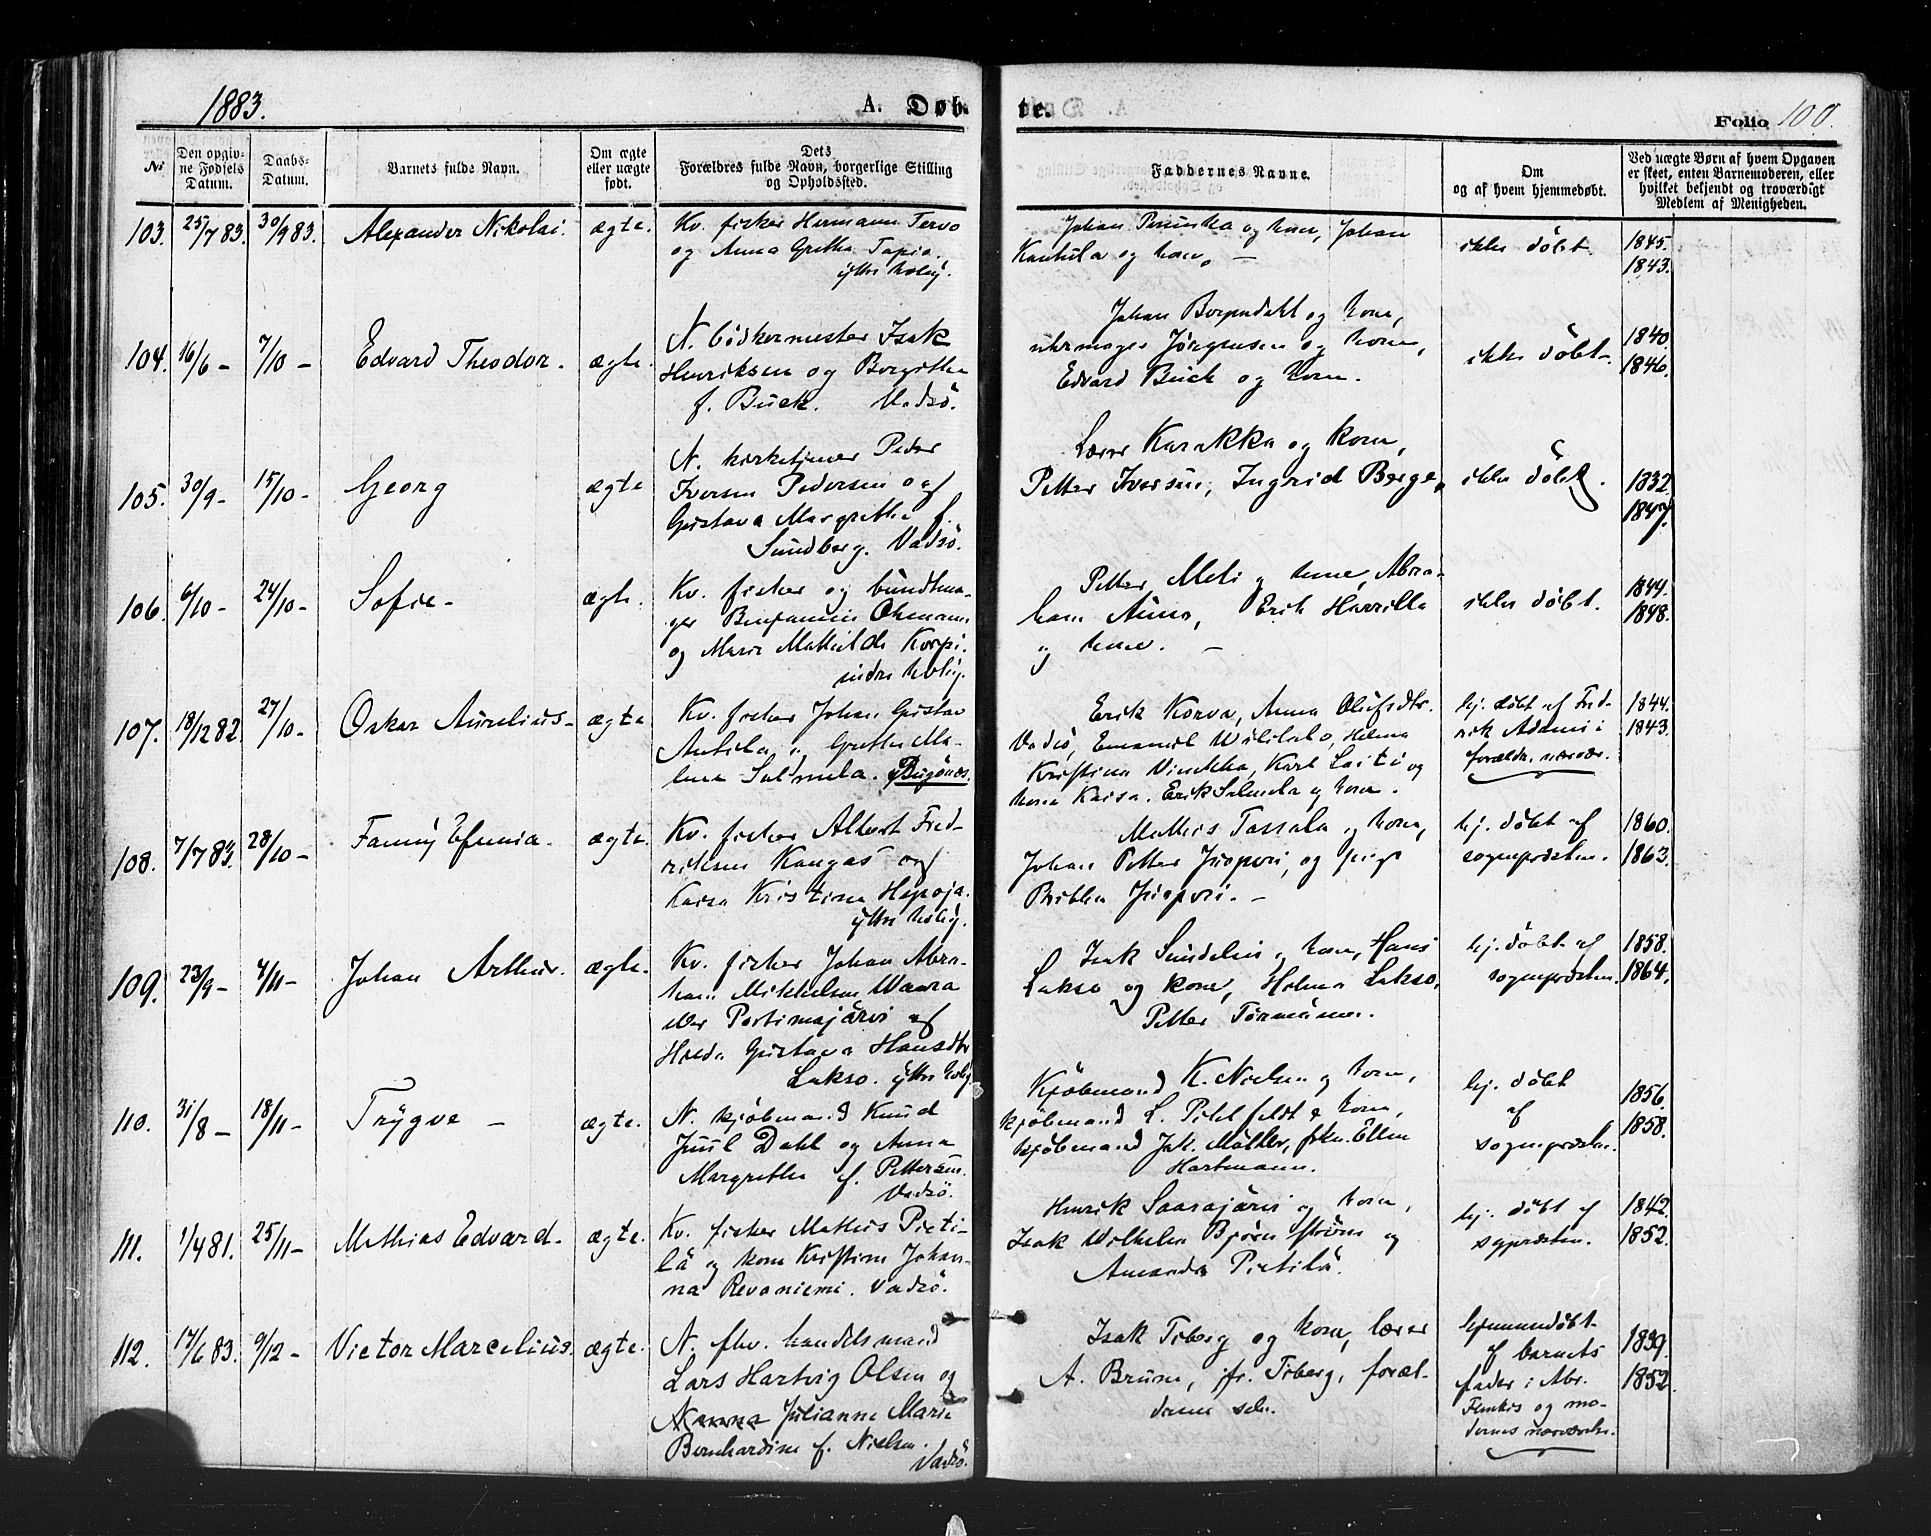 1883.
A. Døb-
te.
Folio 100.
No
Den opgiv-
ne Fødsels
Datum.
Daabs-
Datum.
Barnets fulde Navn.
Om ægte
eller uægte
født.
Dets
Forældres fulde Navn, borgerlige Stilling
og Opholdssted.
Faddernes Navne.
Om
og af hvem hjemmedøbt.
Ved uægte Børn af hvem Opgaven
er skeet, enten Barnemoderen, eller
hvilket bekjendt og troværdigt
Medlem af Menigheden.
103. 25/7 83. 30/9 83. Alexander Nikolai. ægte.
Kv. fisker Hermann Tervo
og Anna Gretha Tapio.
ytre kolvig.
Johan
og kone, Johan
Kantula og kone. –
ikke döbt.
1845.
1843.
104. 16/6 – 7/10 – Edvard Theodor. ægte.
N. bödkermester Isak
Henriksen og Bergitha
f. Buck. Vadsö.
Johan Borgendahl og kone,
uhrmager Jörgensen og kone,
Edvard Buck og kone.
ikke döbt –
1840.
1846.
105. 30/9 – 15/10 – Georg ægte
N. kirketjener Peder
Iversen Pedersen og
Gustava Margretha f.
Sundberg. Vadsö.
Lærer Karakka og kone,
Petter Iversen, Ingrid Berge.
ikke döbt.
1832.
1847.
106. 6/10 – 24/10 – Sofie – ægte.
Kv. fisker og bundtma-
ger Benjamin Ohmann
og Marie Mathilde Korpi.
indre kolvig.
Petter Meli og kone, Abra-
ham Aimo, Erik Harrilla
og kone. –
ikke döbt.
1844.
1848.
107. 18/12 82. 27/10 – Oskar Aurelius – ægte
Kv. fisker Johan Gustav
Antila og Gretha Ma-
lena Salmela. Bugönæs.
Erik Korva, Anna Olufsdtr.
Vadsö, Emanuel
Helena
Kristina
Karl Laiti og
kone Kaisa. Erik Salmela og kone.
hj. döbt af Fred-
rik Adami i
forældr. nærvær.
1844.
1843.
108. 7/7 83. 28/10 – Fanny Efenia. ægte.
Kv. fisker Albert Fred-
riksen Kangas og
Kaisa Kristina Hepoja.
ytre kolvig.
Mathis Tassala og kone,
Johan Petter
og pige
hj. döbt af
sognepræsten.
1860.
1863.
109. 23/9 – 4/11 – Johan Arthur. ægte.
Kv. fisker Johan Abra-
ham Mikkelsen Waara
eller Portimojärvi og
Hilda Gustava Hansdtr
Lakso. ytre kolvig
Isak Sundelin og kone, Hans
Lakso og kone, Helena Lakso,
Petter Törmänen.
hj. döbt af
sognepræsten.
1858.
1864.
110. 31/8 – 18/11 – Trygve – ægte.
N. kjöbmand Knud
Juul Dahl og Anna
Margretha f. Pettersen.
Vadsö.
Kjöbmand K. Nielsen og kone,
kjöbmand L. Plehfeldt & kone,
kjöbmand Jak. Möller, frkn. Ellen
Hartmann.
hj. döbt
af
sognepræsten.
1856.
1858.
111. 1/4 81. 25/11 – Mathias Edvard – ægte.
Kv. fisker Mathis Pieti-
lä og kone Kristine Johan-
na Rovaniemi. Vadsö.
Henrik Saarajärvi og kone,
Isak Wilhelm Björnström og
Amanda Pietilä.
hj. döbt af
sgpræsten.
1842.
1852.
112. 17/6 83. 9/12 – Victor Marcelius. ægte.
N. fhv. handelsmand
Lars Hartvig Olsen og
Julianne Marie
Bernhardine f. Nielsen.
Vadsö.
Isak Tiberg og kone, lærer
A. Bruun, jfr. Tiberg, foræl-
drene selv.
hjemmedöbt
af barnets
fader i Abr.
og mo-
deres nærværelse.
1839.
1852.